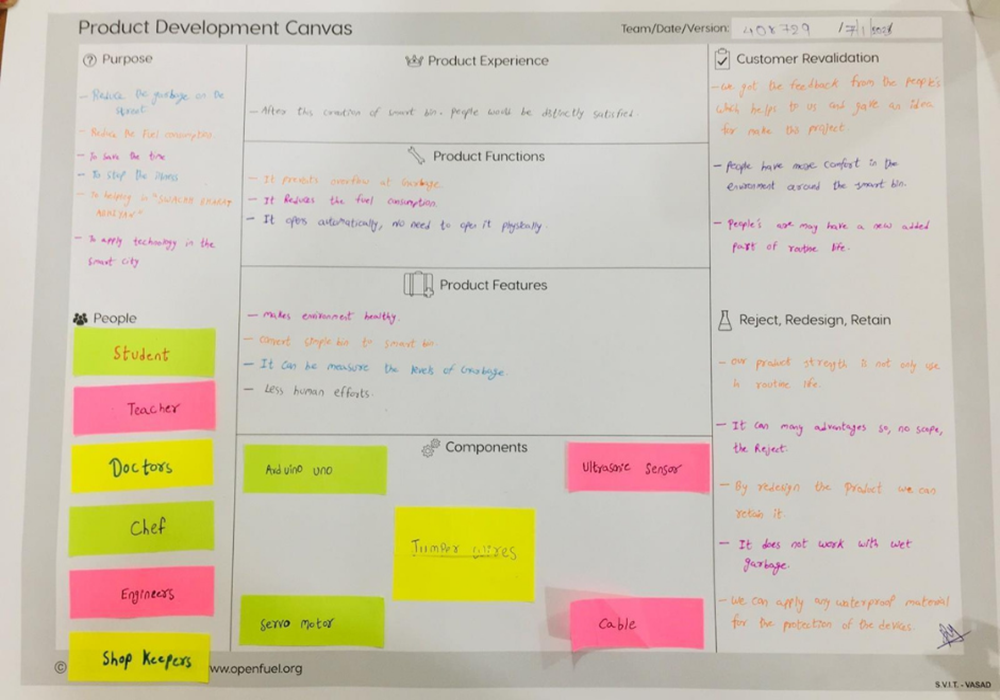 Product Development Canvas
Team/Date/Version: 408729 /7/1/2021
Purpose
- Reduce the garbage on the
street
- Reduce the Fuel consumption.
- To save the time
- To stop the illness
- To helping in "SWACHH BHARAT
ABHIYAN"
- To apply technology in the
Smart city
People
Student
Teacher
Doctors
Chef
Engineers
Shop Keepers
Product Experience
- After this creation of smart bin. people would be distinctly satisfied.
Product Functions
- It prevents overflow at Garbage.
- It Reduces the fuel consumption
- It opens automatically, no need to open it physically.
Product Features
- makes environment healthy.
- convert simple bin to smart bin.
- It can be measure the levels of Garbage.
- Less human efforts.
Components
Arduino uno
Ultrasonic Sensor
Jumper wires
Servo motor
Cable
Customer Revalidation
- we got the feedback from the people's
which helps to us and gave an idea
for make this project.
- People have more comfort in the
environment around the smart bin.
- People's are may have a new added
part of routine life.
Reject, Redesign, Retain
- our product strength is not only use
in routine life.
- It can many advantages so, no scope,
the Reject.
- By redesign the Product we can
retain it.
- It does not work with wet
garbage.
- We can apply any waterproof material
for the protection of the devices.
© www.openfuel.org
S.V.I.T. - VASAD